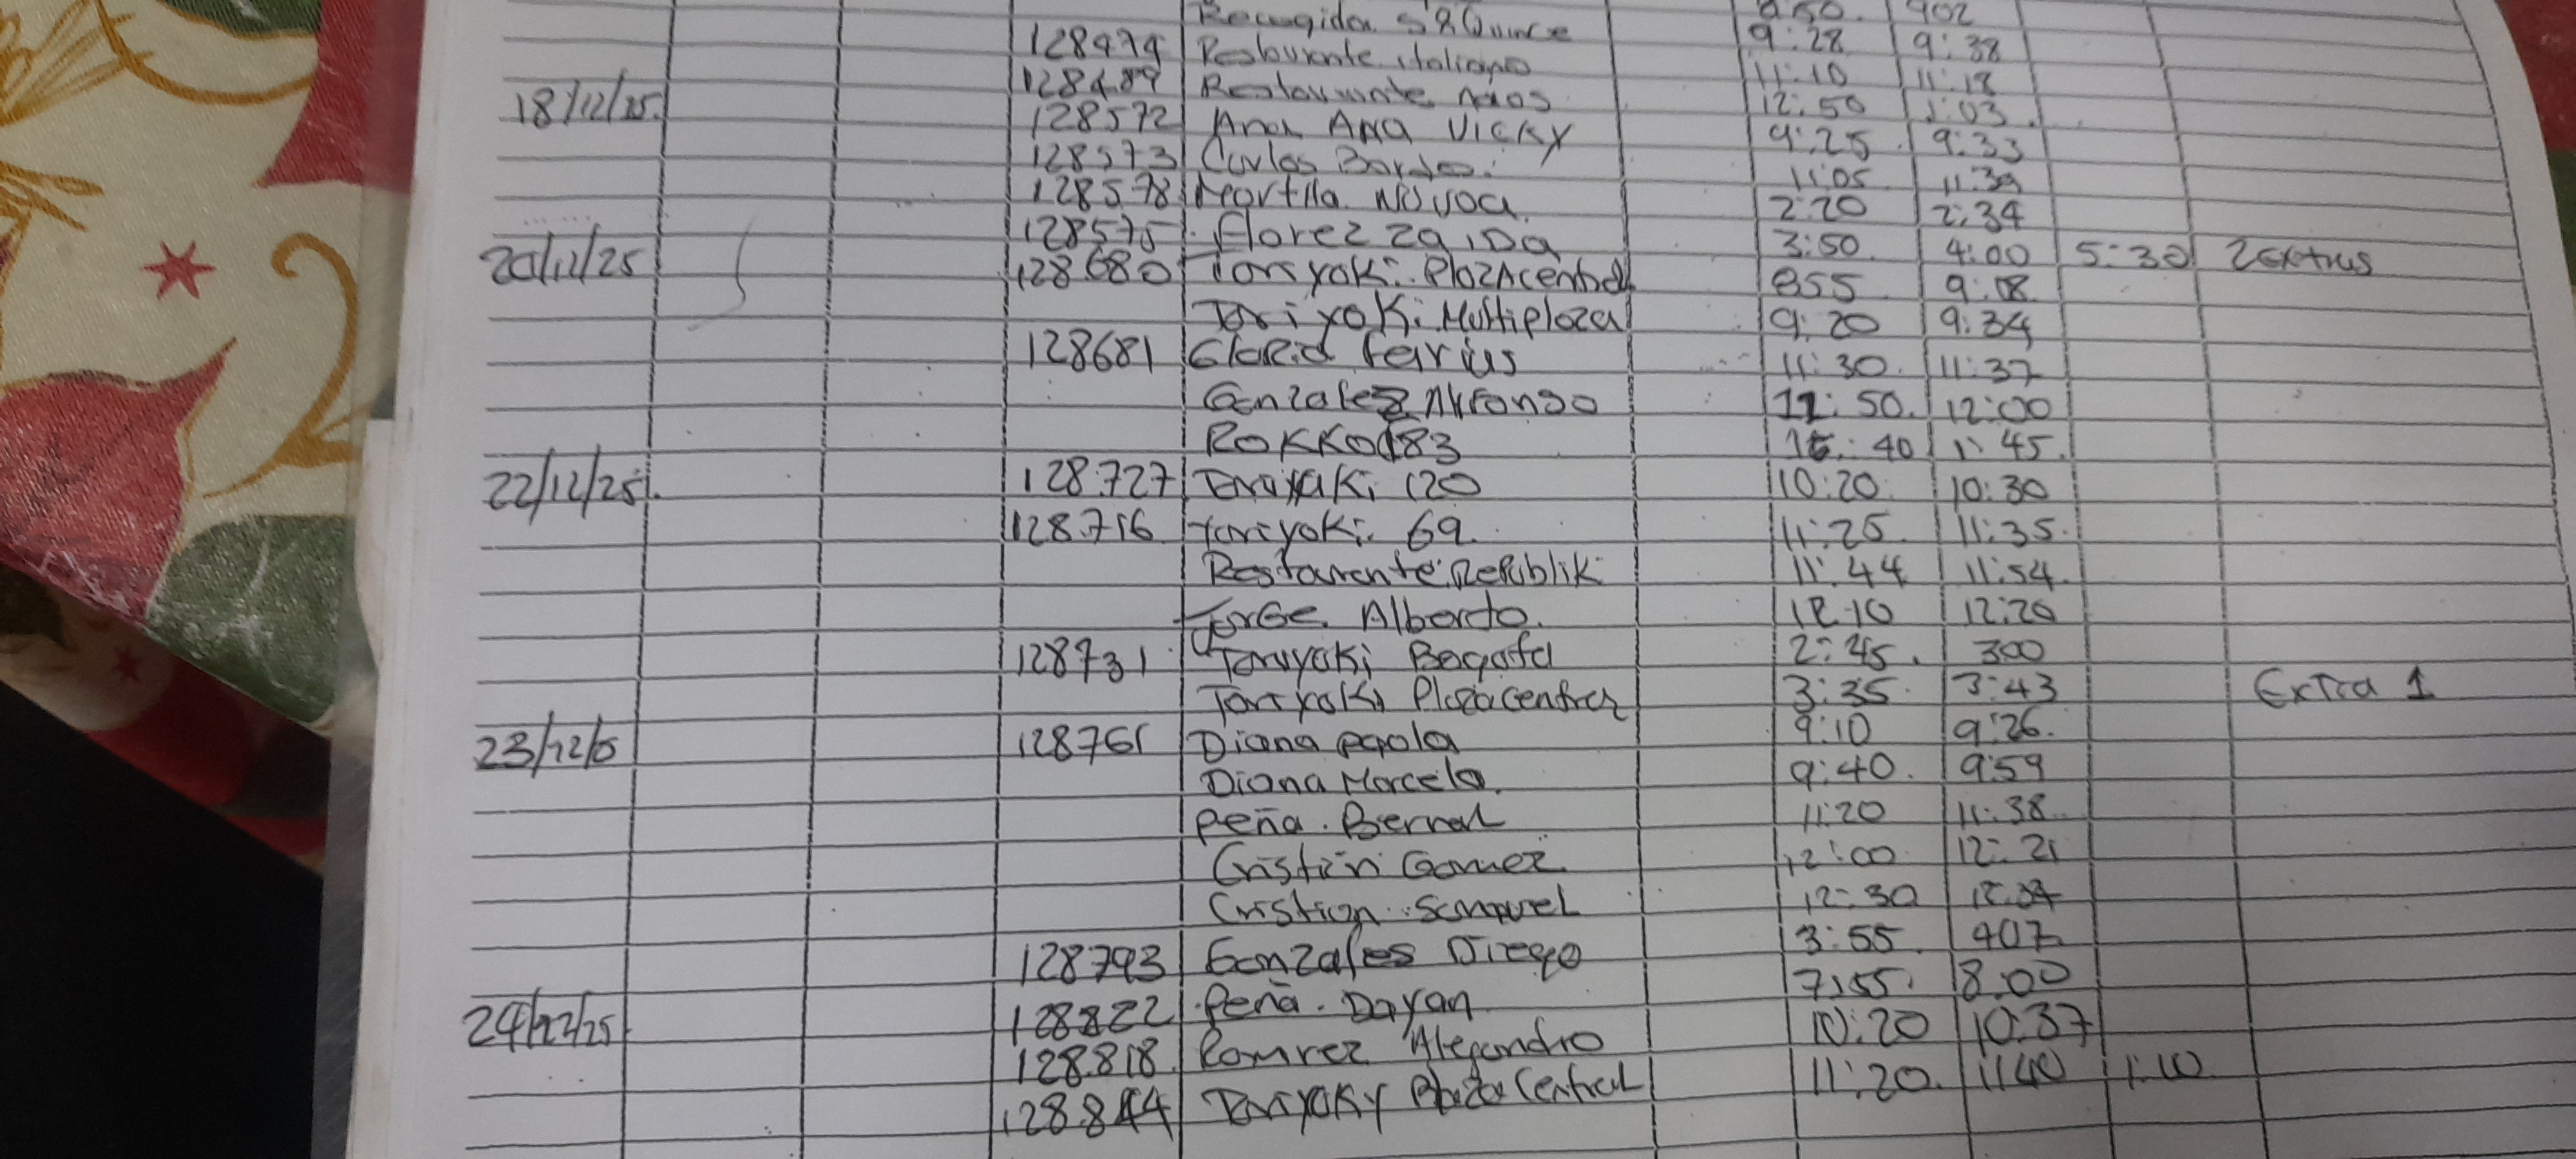 Recogida 5&Quince 850. 902
128474 Restaurante italiano 9:28 9:38
128489 Restaurante 11:10 11:18
18/12/25 128572 Ana Ana VICKY 12:50 1:03
128573 Carlos 9:25 9:33
128578 Novoa. 11:05 11:39
128575 Florez zaiDa 2:20 2:34
20/12/25 128680 Toriyoki. PlozAcentral 3:50 4:00 5:30 2extras
Toriyoki. Multiploza 855 9:18
128681 Farias 9:20 9:34
Gonzalez Alfonso 11:30 11:37
ROKKO 183 11:50. 12:00
40 1:45
22/12/25 128727 Toriyaki 120 10:20 10:30
128716 toriyoki 69. 11:25 11:35
Restarente Republik 11:44 11:54
JorGe Alberto. 12:10 12:20
128731 Toriyaki Bogota 2:45. 300
Toriyoki Plozacentral 3:35 3:43 Extra 1
23/12/5 128761 Diana paola 9:10 9:26
Diana Marcela. 9:40. 959
Peña. Bernal 11:20 11:38
Cristin Gomez 12:00 12:21
Cristian Samuel 12:30
128793 Gonzales Diego 3:55 407
24/12/25 128822 Peña. Dayan 7:55 8:00
128818 Romirez Alejandro 10:20 10:37
128844 Toriyaky Plaza Central 11:20. 1140 1:10